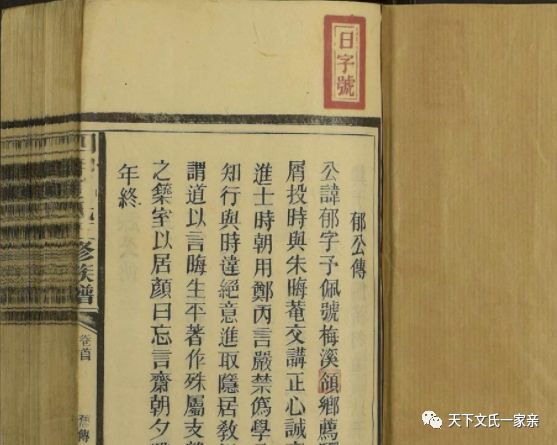 日字號
郁公傳
公諱郁字予佩號梅溪領鄉薦
屑投時與朱晦菴交講正心誠
進士時朝用鄭丙言嚴禁偽學
知行與時違絕意進取隱居教
謂道以言晦生平著作殊屬支
之築室以居顏曰忘言齋朝夕
年終
修族譜
卷首
傳
天下文氏一家亲